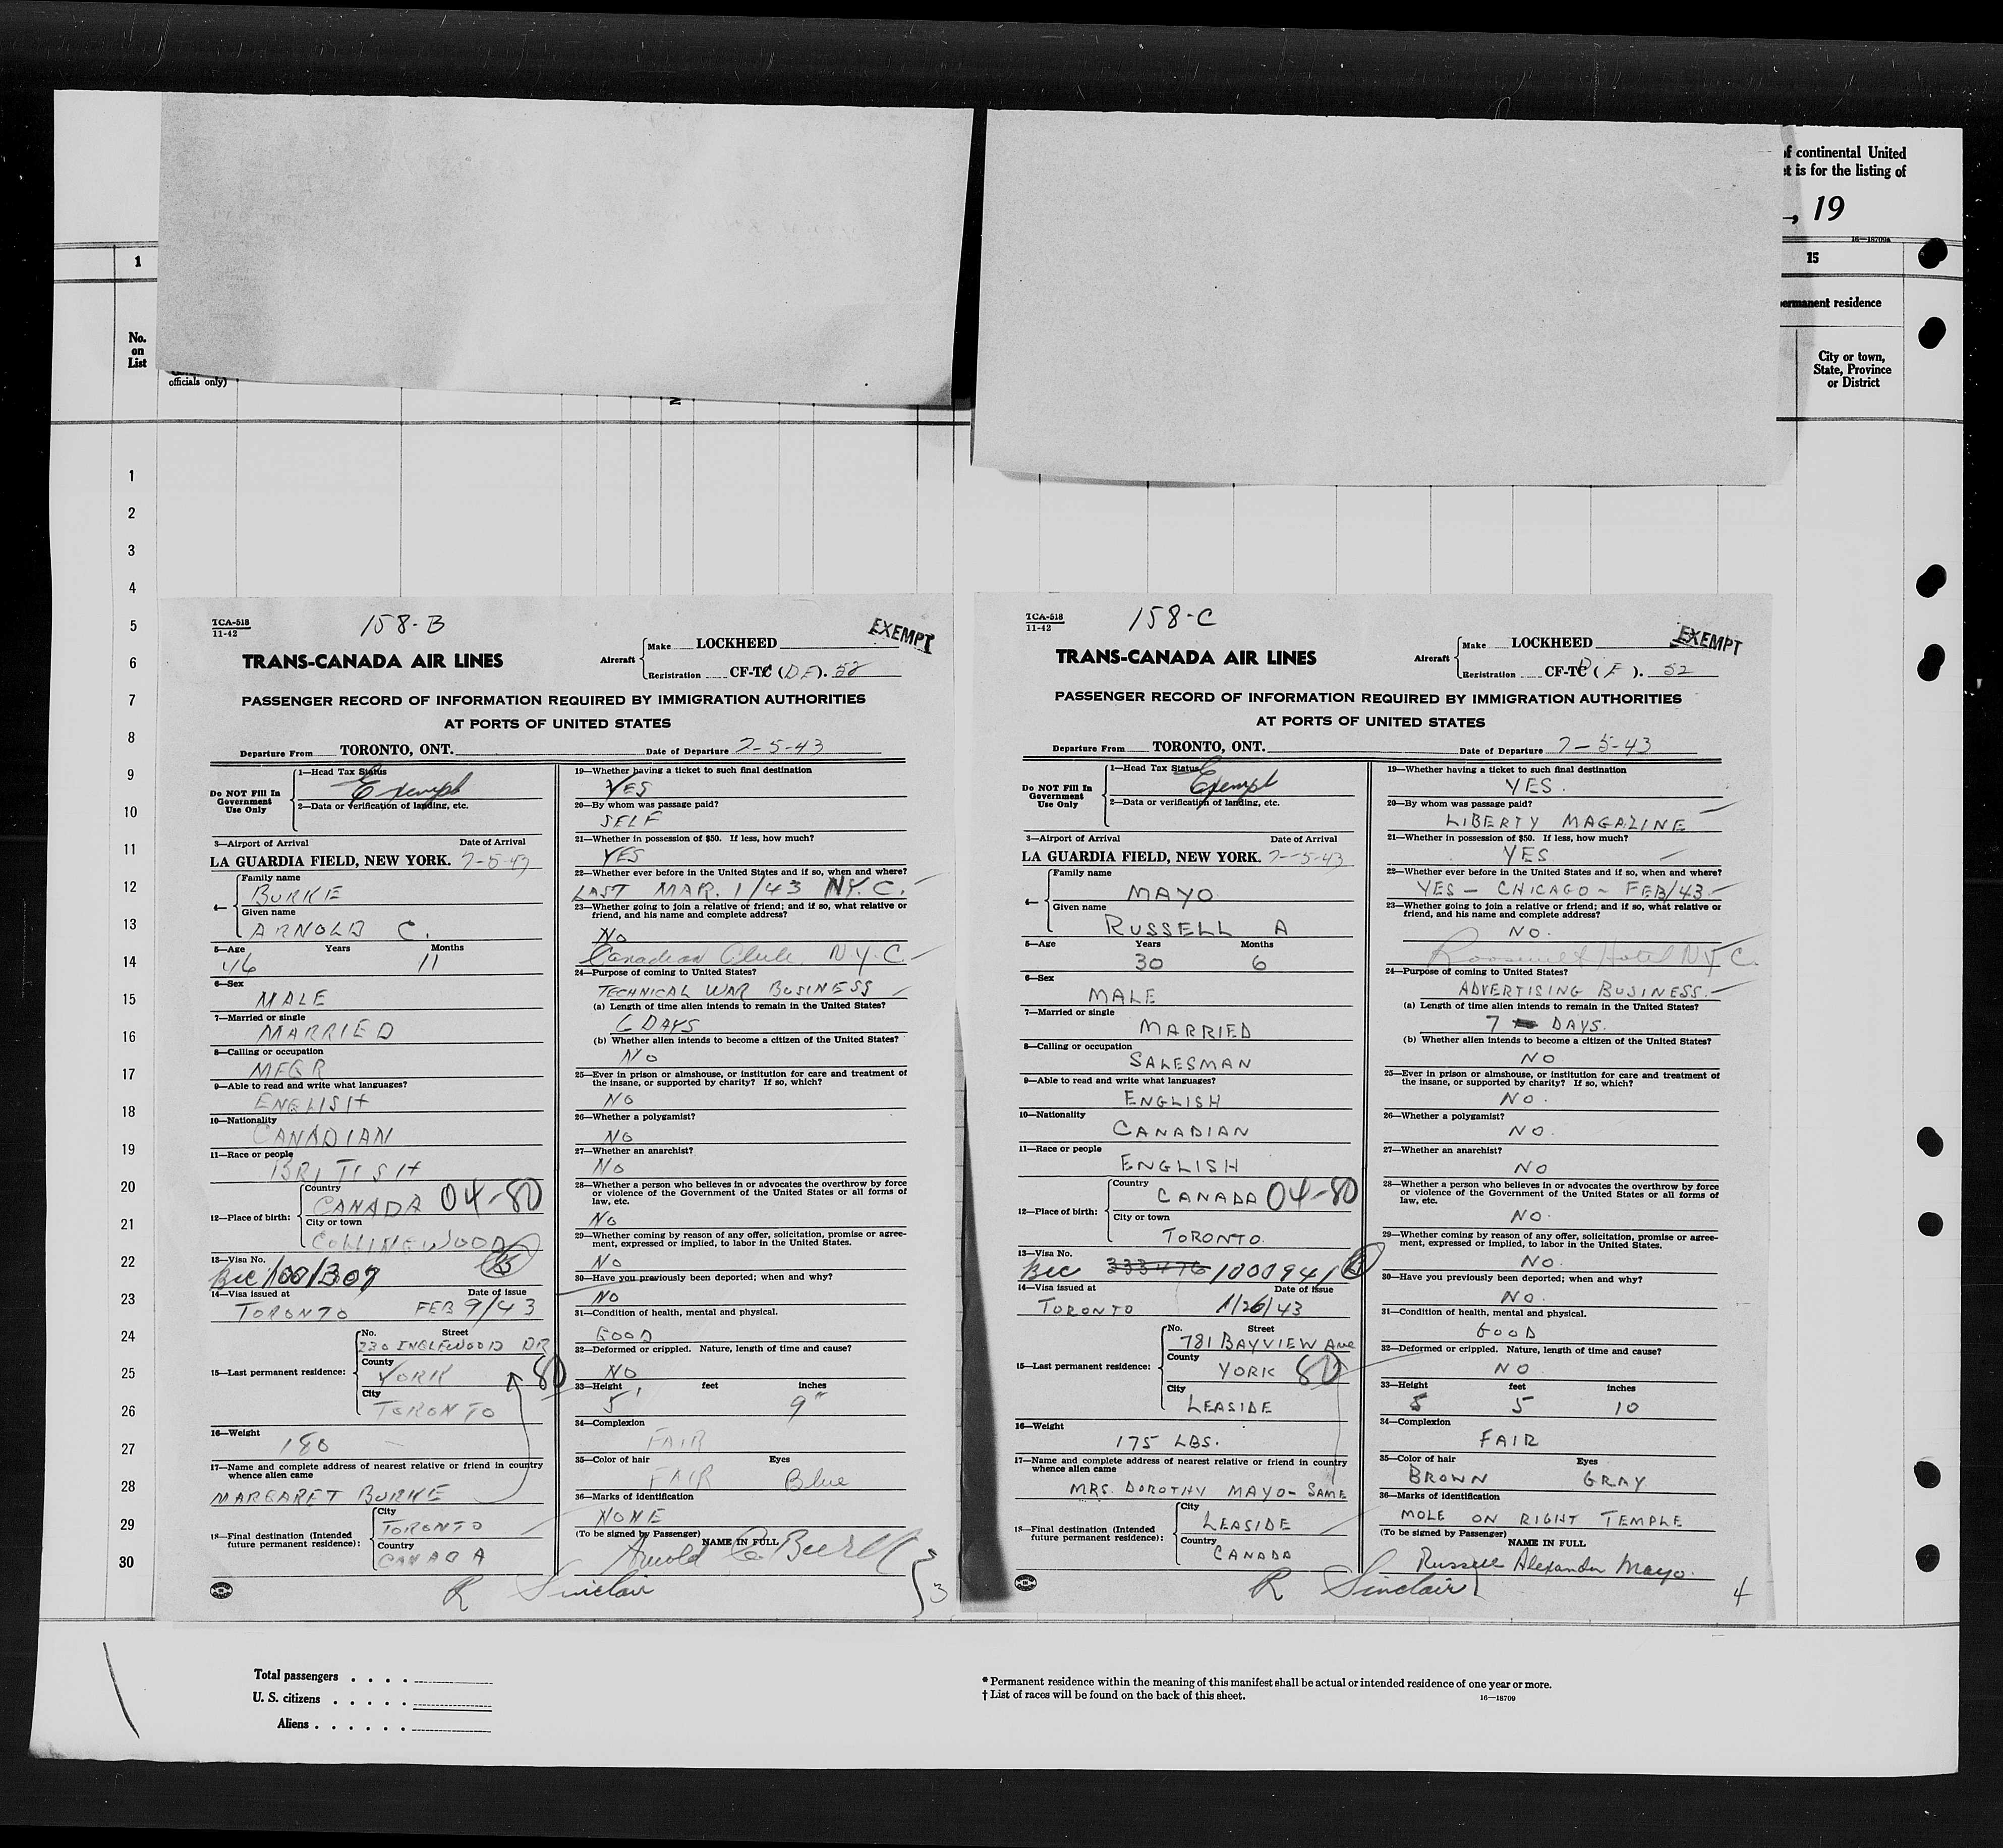 of continental United
et is for the listing of
, 19
16—18709a
1
15
ermanent residence
No.
on
List
officials only)
City or town,
State, Province
or District
N
1
2
3
4
5
6
7
8
9
10
11
12
13
14
15
16
17
18
19
20
21
22
23
24
25
26
27
28
29
30
TCA-518
11-42
158-B
EXEMPT
TRANS-CANADA AIR LINES
Aircraft
Make LOCKHEED
Registration CF-TC (DF). 52
PASSENGER RECORD OF INFORMATION REQUIRED BY IMMIGRATION AUTHORITIES
AT PORTS OF UNITED STATES
Departure From TORONTO, ONT. Date of Departure 7-5-43
Do NOT Fill In
Government
Use Only
1—Head Tax Status
Exempt
2—Data or verification of landing, etc.
3—Airport of Arrival Date of Arrival
LA GUARDIA FIELD, NEW YORK. 7-5-43
4—
Family name
BURKE
Given name
ARNOLD C.
5—Age Years Months
46 11
6—Sex
MALE
7—Married or single
MARRIED
8—Calling or occupation
MFGR
9—Able to read and write what languages?
ENGLISH
10—Nationality
CANADIAN
11—Race or people
BRITISH
12—Place of birth:
Country
CANADA 04-80
City or town
COLLINGWOOD
13—Visa No.
Bcc 1001307
14—Visa issued at Date of issue
TORONTO FEB 9/43
15—Last permanent residence:
No. Street
230 INGLEWOOD DR
County
YORK 80
City
TORONTO
16—Weight
180
17—Name and complete address of nearest relative or friend in country
whence alien came
MARGARET BURKE
18—Final destination (Intended
future permanent residence):
City
TORONTO
Country
CANADA
19—Whether having a ticket to such final destination
YES
20—By whom was passage paid?
SELF
21—Whether in possession of $50. If less, how much?
YES
22—Whether ever before in the United States and if so, when and where?
LAST MAR. 1/43 N.Y.C.
23—Whether going to join a relative or friend; and if so, what relative or
friend, and his name and complete address?
No
Canadian Club, N.Y.C.
24—Purpose of coming to United States?
TECHNICAL WAR BUSINESS
(a) Length of time alien intends to remain in the United States?
6 DAYS
(b) Whether alien intends to become a citizen of the United States?
NO
25—Ever in prison or almshouse, or institution for care and treatment of
the insane, or supported by charity? If so, which?
NO
26—Whether a polygamist?
NO
27—Whether an anarchist?
NO
28—Whether a person who believes in or advocates the overthrow by force
or violence of the Government of the United States or all forms of
law, etc.
NO
29—Whether coming by reason of any offer, solicitation, promise or agree-
ment, expressed or implied, to labor in the United States.
NO
30—Have you previously been deported; when and why?
NO
31—Condition of health, mental and physical.
GOOD
32—Deformed or crippled. Nature, length of time and cause?
NO
33—Height feet inches
5' 9"
34—Complexion
FAIR
35—Color of hair Eyes
FAIR Blue
36—Marks of identification
NONE
(To be signed by Passenger) NAME IN FULL
Arnold C. Burke
R Sinclair
3
TCA-518
11-42
158-C
EXEMPT
TRANS-CANADA AIR LINES
Aircraft
Make LOCKHEED
Registration CF-TC (DF). 52
PASSENGER RECORD OF INFORMATION REQUIRED BY IMMIGRATION AUTHORITIES
AT PORTS OF UNITED STATES
Departure From TORONTO, ONT. Date of Departure 7-5-43
Do NOT Fill In
Government
Use Only
1—Head Tax Status
Exempt
2—Data or verification of landing, etc.
3—Airport of Arrival Date of Arrival
LA GUARDIA FIELD, NEW YORK. 7-5-43
4—
Family name
MAYO
Given name
RUSSELL A
5—Age Years Months
30 6
6—Sex
MALE
7—Married or single
MARRIED
8—Calling or occupation
SALESMAN
9—Able to read and write what languages?
ENGLISH
10—Nationality
CANADIAN
11—Race or people
ENGLISH
12—Place of birth:
Country
CANADA 04-80
City or town
TORONTO.
13—Visa No.
Bcc 333476 1000941
14—Visa issued at Date of issue
TORONTO 1/26/43
15—Last permanent residence:
No. Street
781 BAYVIEW Ave
County
YORK 80
City
LEASIDE
16—Weight
175 LBS.
17—Name and complete address of nearest relative or friend in country
whence alien came
MRS. DOROTHY MAYO - SAME
18—Final destination (Intended
future permanent residence):
City
LEASIDE
Country
CANADA
19—Whether having a ticket to such final destination
YES.
20—By whom was passage paid?
LIBERTY MAGAZINE
21—Whether in possession of $50. If less, how much?
YES
22—Whether ever before in the United States and if so, when and where?
YES - CHICAGO - FEB/43
23—Whether going to join a relative or friend; and if so, what relative or
friend, and his name and complete address?
NO.
Roosevelt Hotel N.Y.C.
24—Purpose of coming to United States?
ADVERTISING BUSINESS.
(a) Length of time alien intends to remain in the United States?
7 DAYS.
(b) Whether alien intends to become a citizen of the United States?
NO
25—Ever in prison or almshouse, or institution for care and treatment of
the insane, or supported by charity? If so, which?
NO.
26—Whether a polygamist?
NO.
27—Whether an anarchist?
NO
28—Whether a person who believes in or advocates the overthrow by force
or violence of the Government of the United States or all forms of
law, etc.
NO.
29—Whether coming by reason of any offer, solicitation, promise or agree-
ment, expressed or implied, to labor in the United States.
NO.
30—Have you previously been deported; when and why?
NO.
31—Condition of health, mental and physical.
GOOD
32—Deformed or crippled. Nature, length of time and cause?
NO
33—Height feet inches
5 10
34—Complexion
FAIR
35—Color of hair Eyes
BROWN GRAY
36—Marks of identification
MOLE ON RIGHT TEMPLE
(To be signed by Passenger) NAME IN FULL
Russell Alexander Mayo.
R Sinclair
4
Total passengers . . . .
U. S. citizens . . . . .
Aliens . . . . . .
* Permanent residence within the meaning of this manifest shall be actual or intended residence of one year or more.
† List of races will be found on the back of this sheet.
16—18709